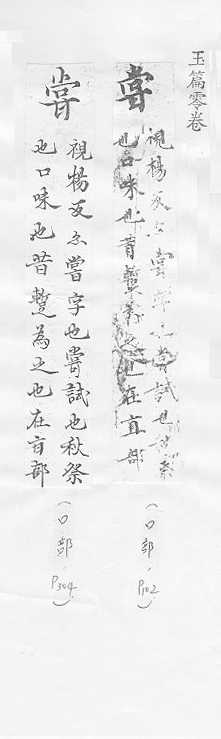 玉篇零卷
甞
視楊反尒嘗字也甞試也秋祭
也口味也昔蹔為之也在旨部
(口部,P102)
甞
視楊反尒嘗字也甞試也秋祭
也口味也昔蹔為之也在旨部
(口部,P304)